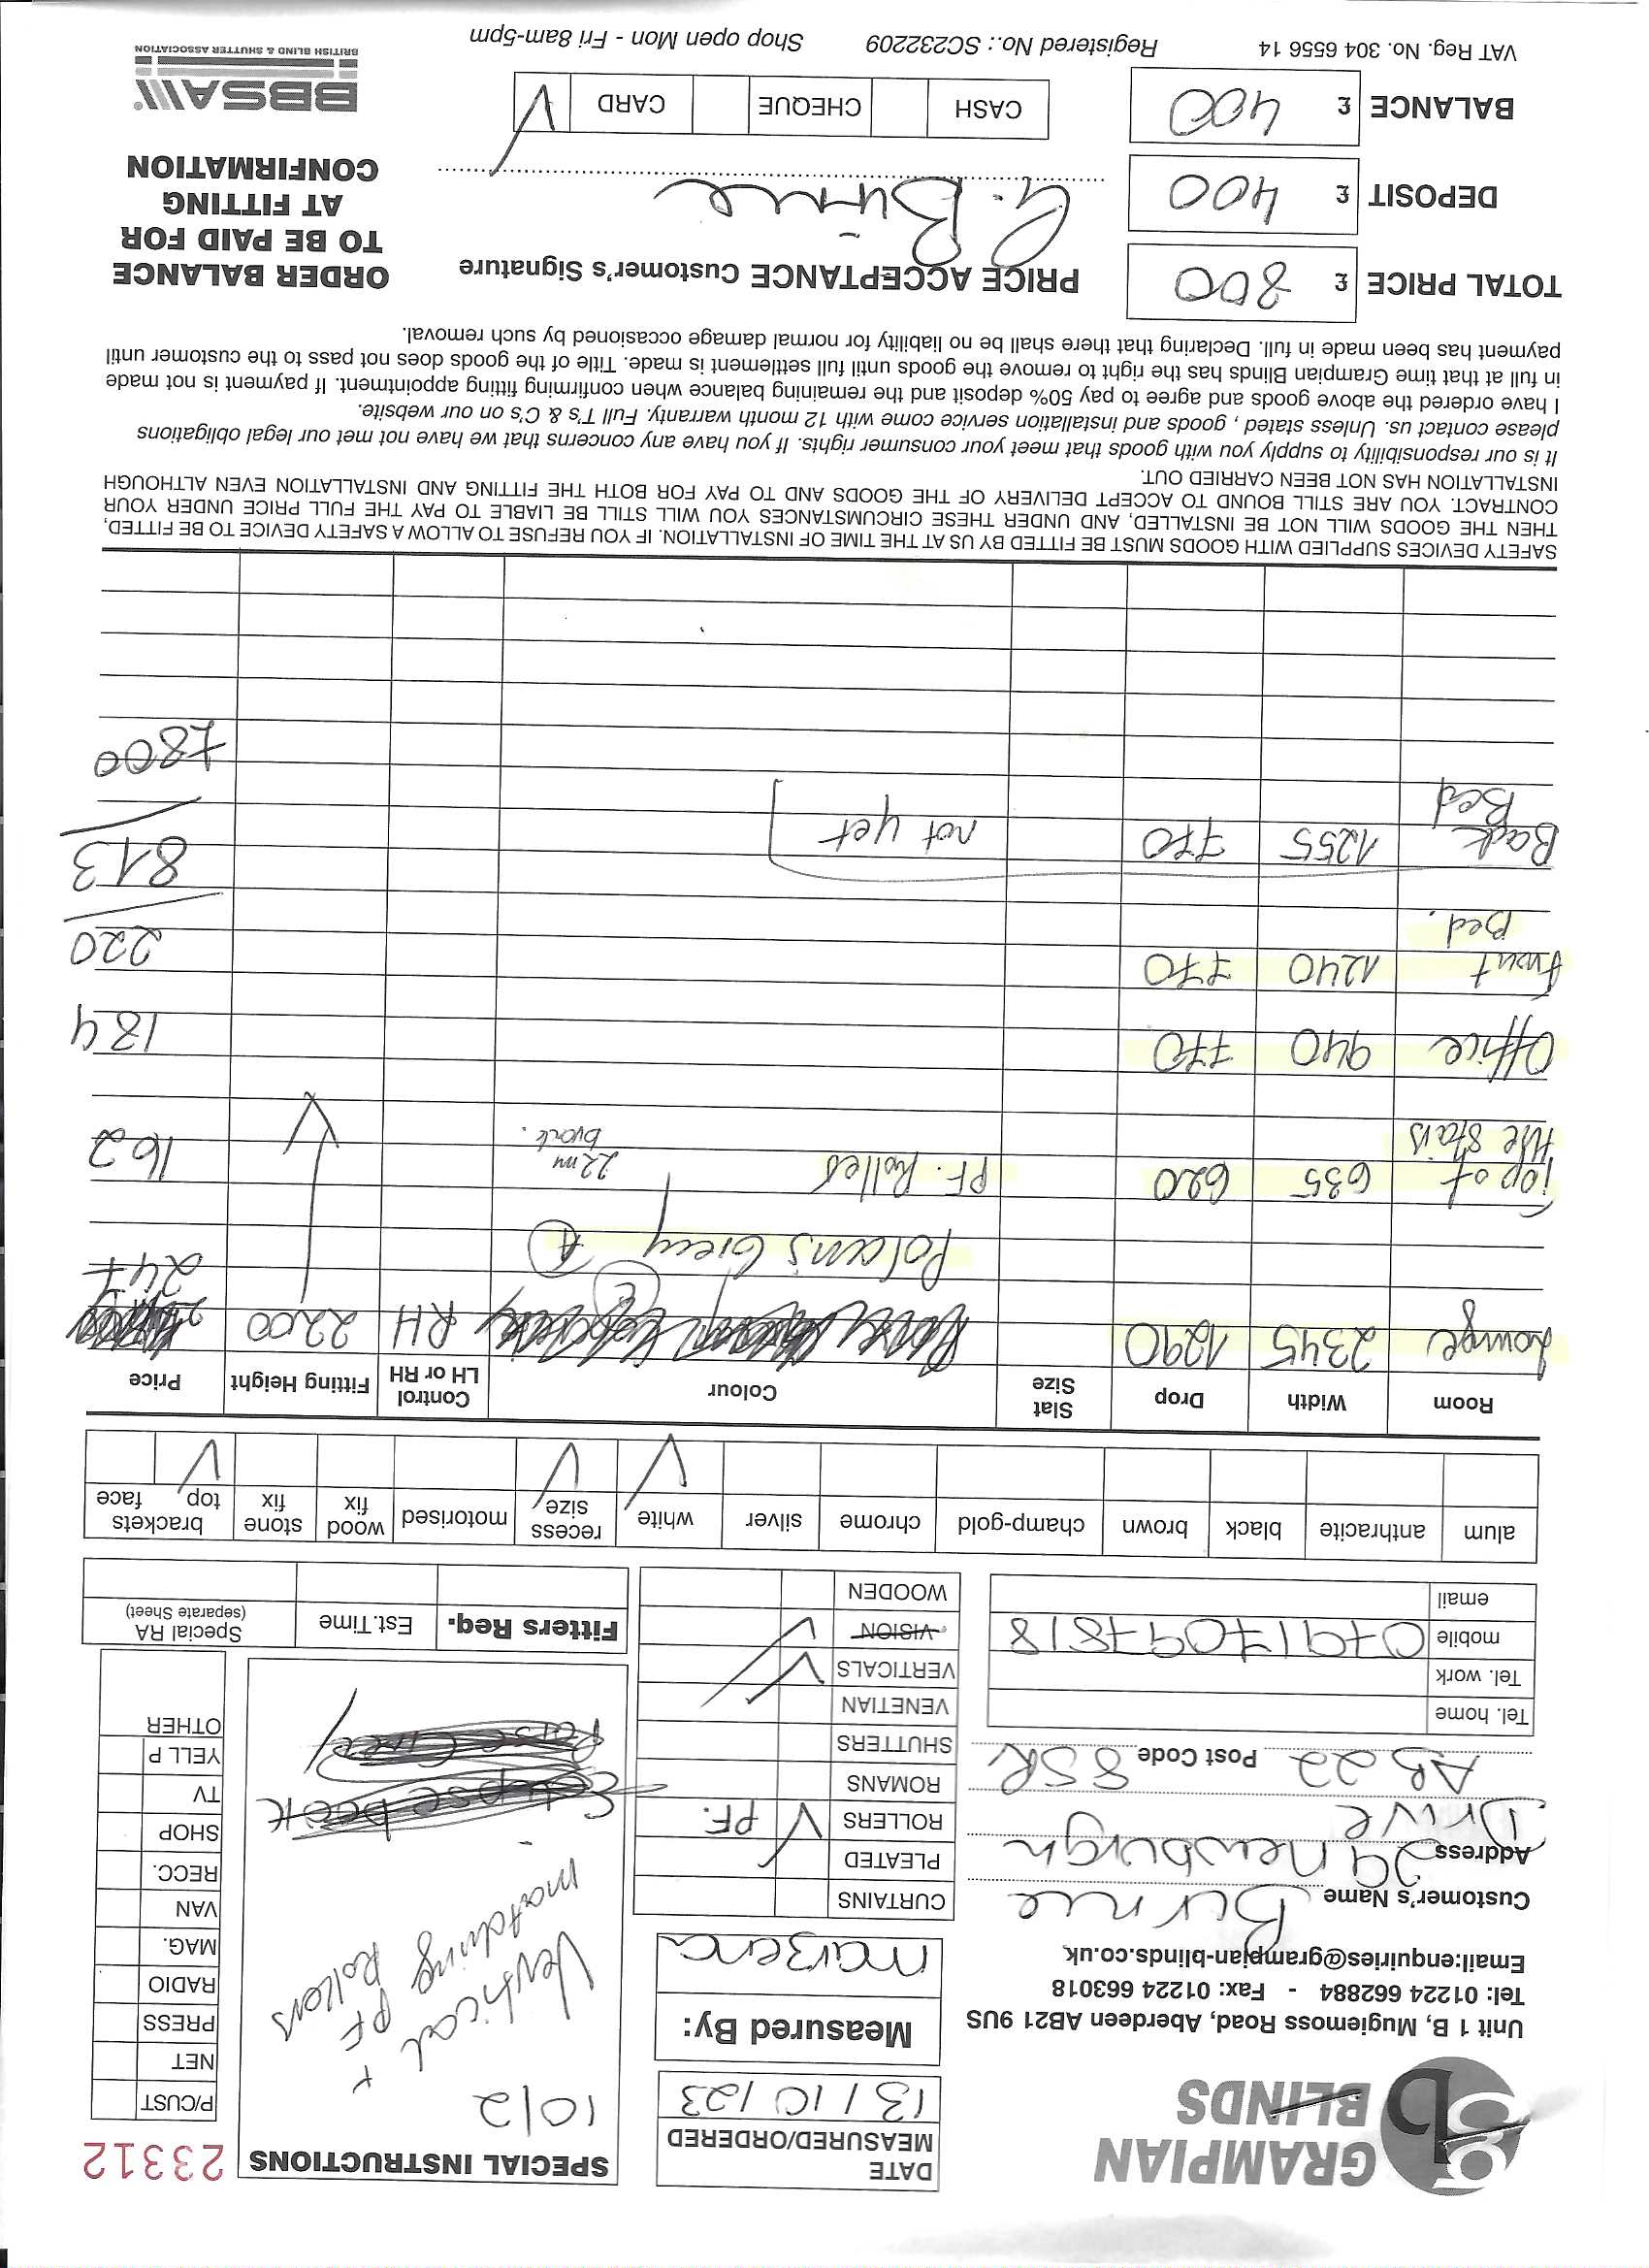 GRAMPIAN
BLINDS
gb
Unit 1 B, Mugiemoss Road, Aberdeen AB21 9US
Tel: 01224 662884 - Fax: 01224 663018
Email:enquiries@grampian-blinds.co.uk
Customer's Name Birnie
Address 29 Newburgh
Drive
AB22 Post Code 8SR
Tel. home
Tel. work
mobile 07917097818
email
DATE
MEASURED/ORDERED
13/10/23
Measured By:
Marzena
CURTAINS
PLEATED
ROLLERS PF.
ROMANS
SHUTTERS
VENETIAN
VERTICALS
VISION
WOODEN
SPECIAL INSTRUCTIONS
10/2
Vertical +
PF
matching Rollers
23312
P/CUST
NET
PRESS
RADIO
MAG.
VAN
RECC.
SHOP
TV
YELL P
OTHER
Fitters Req. Est.Time Special RA
(separate Sheet)
alum anthracite black brown champ-gold chrome silver white recess size motorised wood fix stone fix brackets top face
Room Width Drop Slat Size Colour Control LH or RH Fitting Height Price
Lounge 2345 1290 RH 2200
247
Polaris Grey A
Top of 635 620 PF. Roller 22mm 162
the stairs
Office 940 770 184
Front 1240 770 220
Bed.
813
Back 1255 770 not yet
Bed
£800
SAFETY DEVICES SUPPLIED WITH GOODS MUST BE FITTED BY US AT THE TIME OF INSTALLATION. IF YOU REFUSE TO ALLOW A SAFETY DEVICE TO BE FITTED,
THEN THE GOODS WILL NOT BE INSTALLED, AND UNDER THESE CIRCUMSTANCES YOU WILL STILL BE LIABLE TO PAY THE FULL PRICE UNDER YOUR
CONTRACT. YOU ARE STILL BOUND TO ACCEPT DELIVERY OF THE GOODS AND TO PAY FOR BOTH THE FITTING AND INSTALLATION EVEN ALTHOUGH
INSTALLATION HAS NOT BEEN CARRIED OUT.
It is our responsibility to supply you with goods that meet your consumer rights. If you have any concerns that we have not met our legal obligations
please contact us. Unless stated , goods and installation service come with 12 month warranty. Full T's & C's on our website.
I have ordered the above goods and agree to pay 50% deposit and the remaining balance when confirming fitting appointment. If payment is not made
in full at that time Grampian Blinds has the right to remove the goods until full settlement is made. Title of the goods does not pass to the customer until
payment has been made in full. Declaring that there shall be no liability for normal damage occasioned by such removal.
TOTAL PRICE £ 800
DEPOSIT £ 400
BALANCE £ 400
PRICE ACCEPTANCE Customer's Signature
G. Birnie
CASH CHEQUE CARD
ORDER BALANCE
TO BE PAID FOR
AT FITTING
CONFIRMATION
BBSA
BRITISH BLIND & SHUTTER ASSOCIATION
VAT Reg. No. 304 6556 14 Registered No.: SC232209 Shop open Mon - Fri 8am-5pm